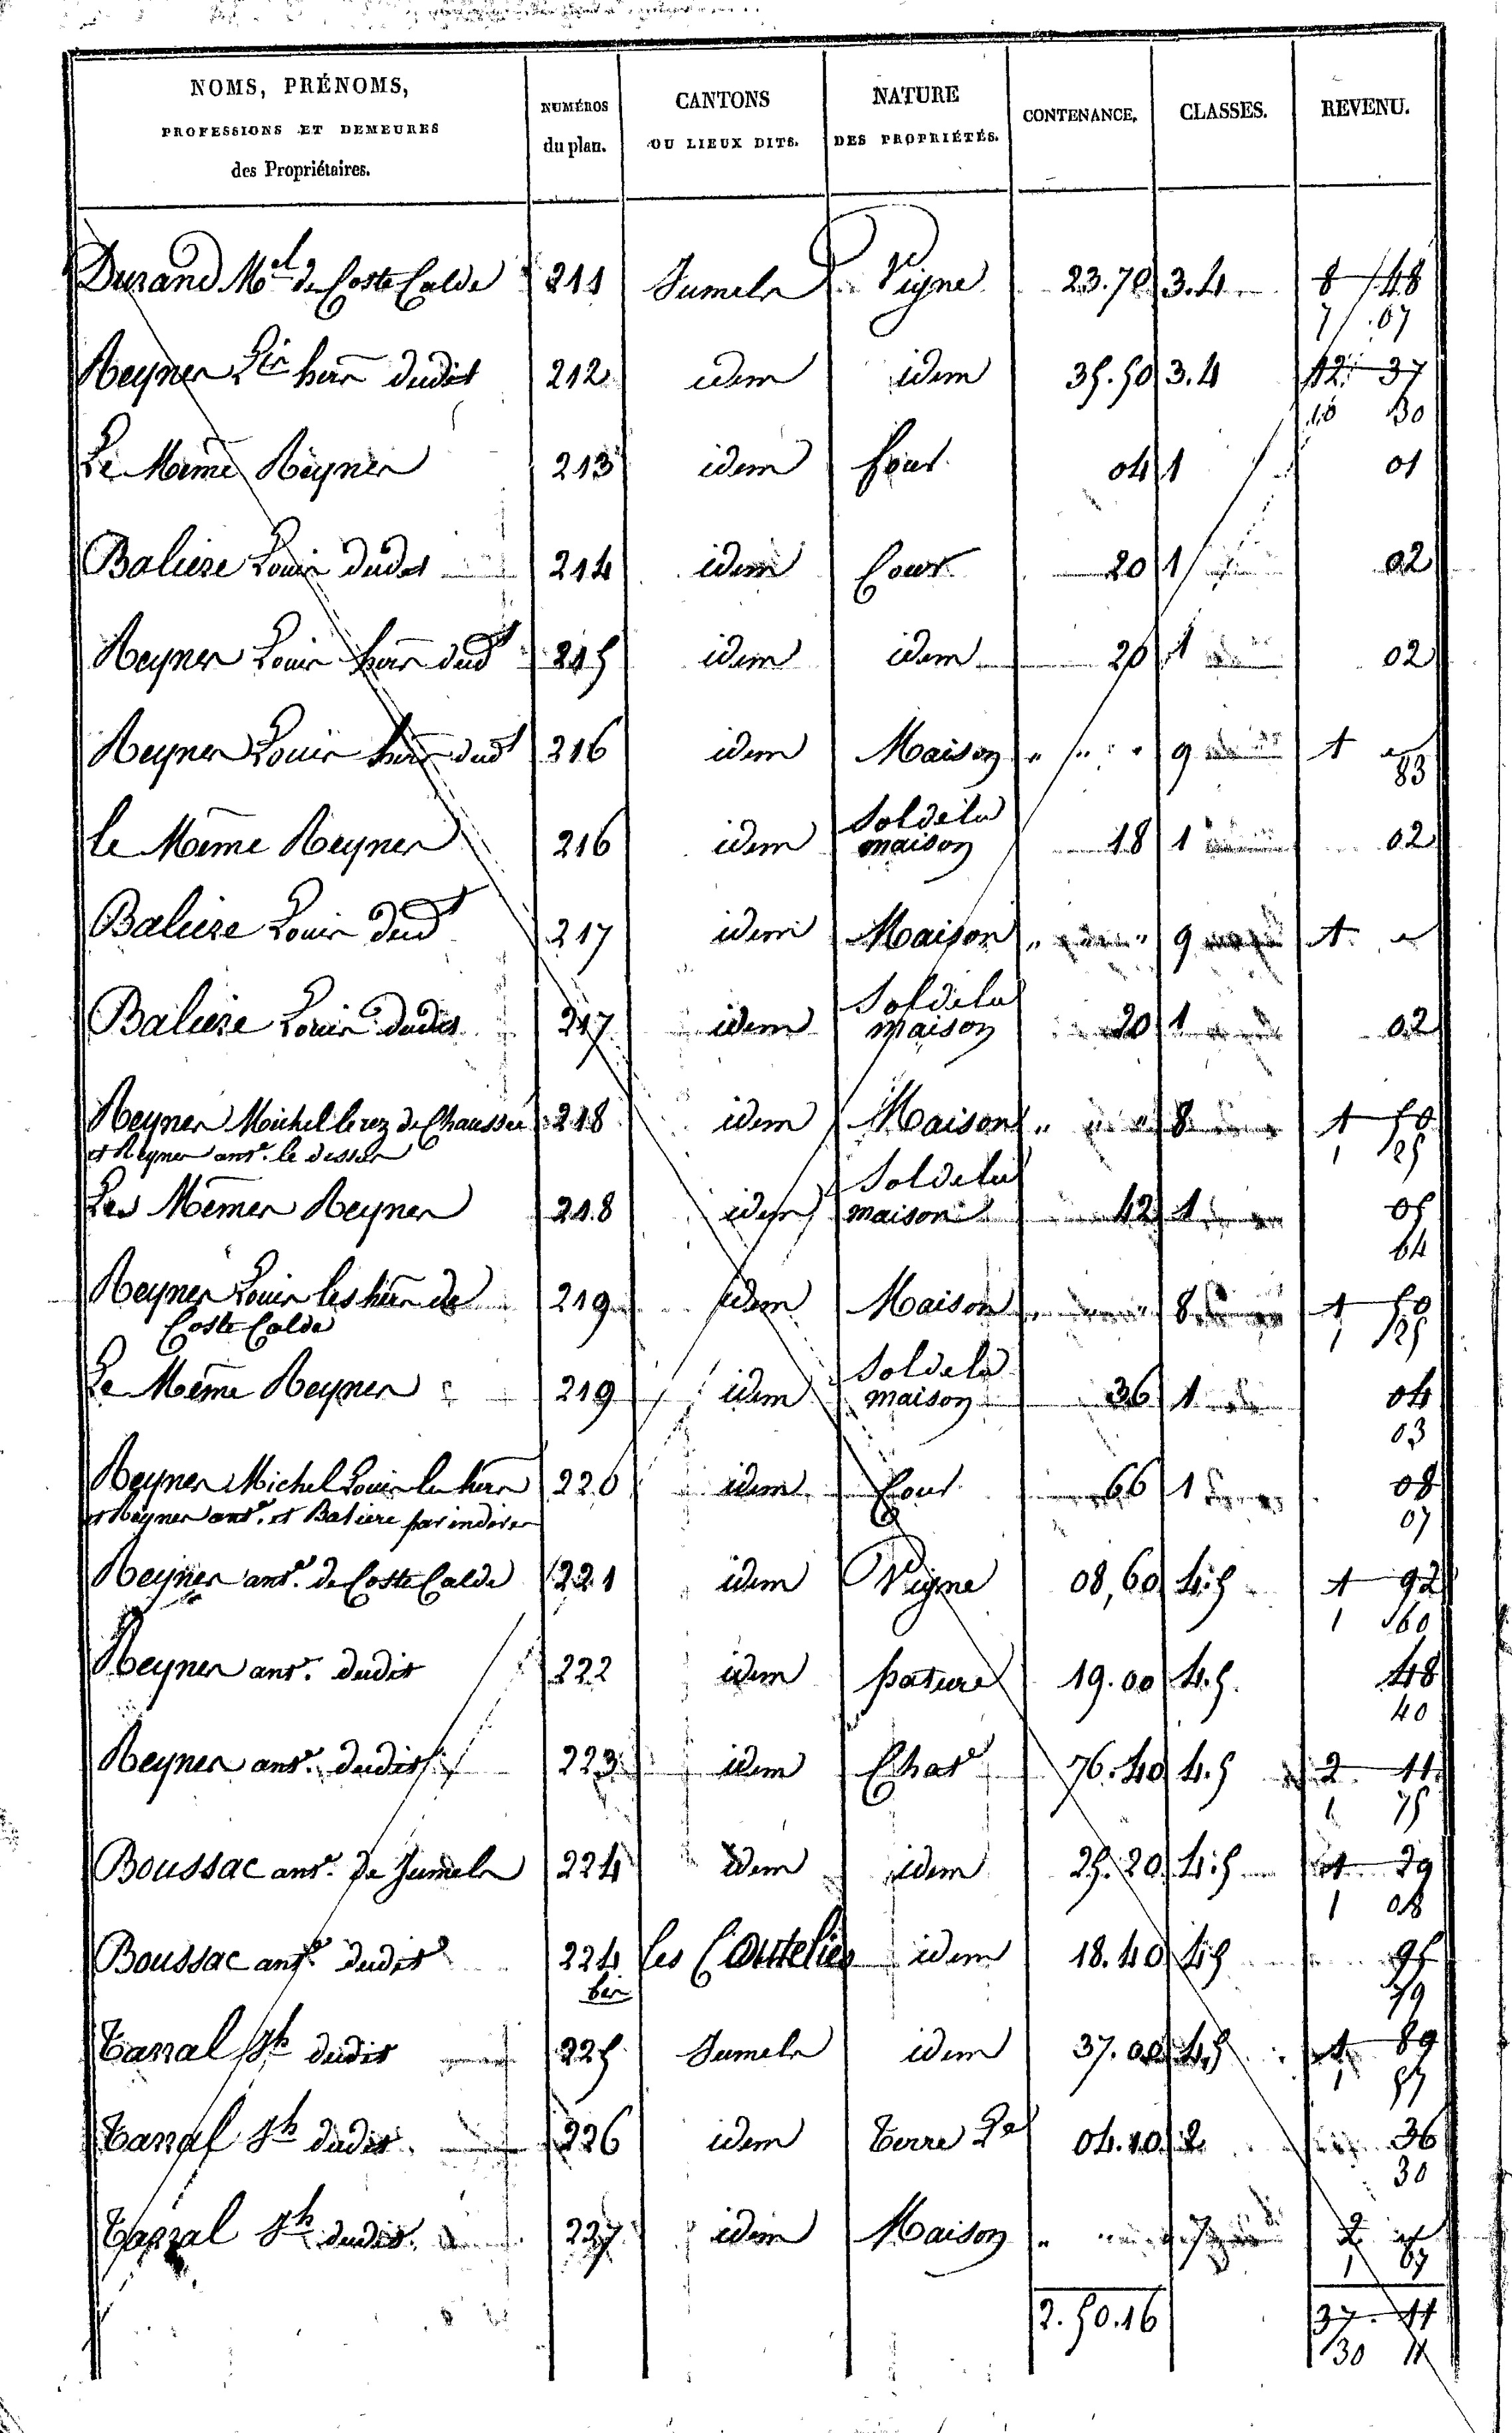 NOMS, PRÉNOMS,
PROFESSIONS ET DEMEURES
des Propriétaires.
NUMÉROS
du plan.
CANTONS
OU LIEUX DITS.
NATURE
DES PROPRIÉTÉS.
CONTENANCE.
CLASSES.
REVENU.
Durand Mel de Coste Calde 211 Jumels Vigne 23.70 3.4 8 48
7 07
Reynes Ls hers dudit 212 idem idem 35.50 3.4 12 37
10 30
Le Même Reynes 213 idem four 04 1 01
Baliere Louis dudit 214 idem Cour 20 1 02
Reynes Louis hers dudt 215 idem idem 20 1 02
Reynes Louis hers dudt 216 idem Maison " " 9 1 "
83
le Même Reynes 216 idem Sol de la maison 18 1 02
Baliere Louis dudt 217 idem Maison " " 9 1 "
Baliere Louis dudit 217 idem Sol de la maison 20 1 02
Reynes Michel le rez de Chaussée 218 idem Maison " " 8 1 50
et Reynes ant. le dessus 1 25
Les Mêmes Reynes 218 idem Sol de la maison 42 1 05
04
Reynes Louis les hers de 219 idem Maison " " 8 1 50
Coste Calde 1 25
Le Même Reynes 219 idem Sol de la maison 36 1 04
03
Reynes Michel Louis les hers 220 idem Cour 66 1 08
et Reynes ant. et Baliere par indivis 07
Reynes ant. de Coste Calde 221 idem Vigne 08,60 4.5 1 92
1 60
Reynes ant. dudit 222 idem pature 19.00 4.5 48
40
Reynes ant. dudit 223 idem Chat 76.40 4.5 2 11
1 75
Boussac ant. de Jumels 224 idem idem 25.20 4.5 1 29
1 08
Boussac ant. dudit 224 les Coutelies idem 18.40 4.5 95
bis 79
Tarral Jh dudit 225 Jumels idem 37.00 4.5 1 89
1 57
Tarral Jh dudit 226 idem Terre 04.10 2 36
30
Tarral Jh dudit 227 idem Maison " 7 2 "
1 67
2.50.16 37. 11
30 11